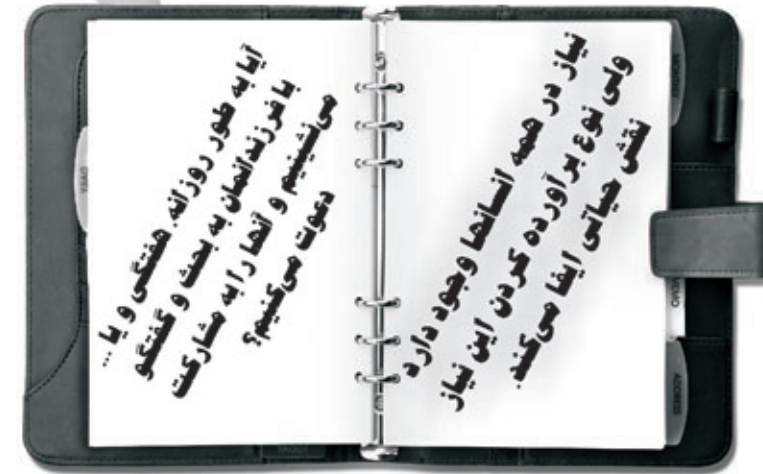 نیاز در همه انسانها وجود دارد
ولی نوع برآورده کردن این نیاز
نقش حیاتی ایفا می‌کند.
آیا به طور روزانه، هفتگی و یا ...
با فرزندانمان به بحث و گفتگو
می‌نشینیم و آنها را به مشارکت
دعوت می‌کنیم؟
MONTHLY
MEMO
ADDRESS
DIARY